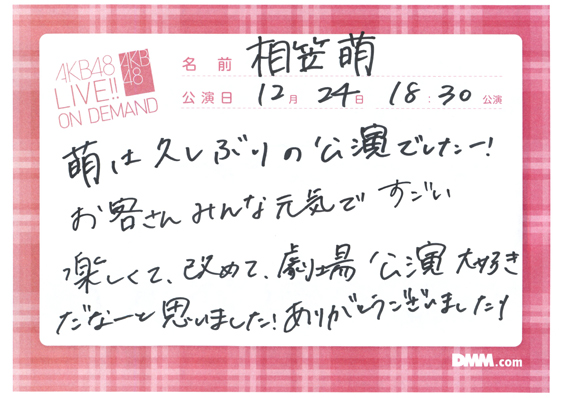 AKB48
LIVE!!
ON DEMAND
AKB
48
名前 相笠萌
公演日 12月 24日 18:30 公演
萌は久しぶりの公演でしたー!
お客さんみんな元気ですごい
楽しくて、改めて、劇場公演大好き
だなーと思いました!ありがとうございました!
DMM.com